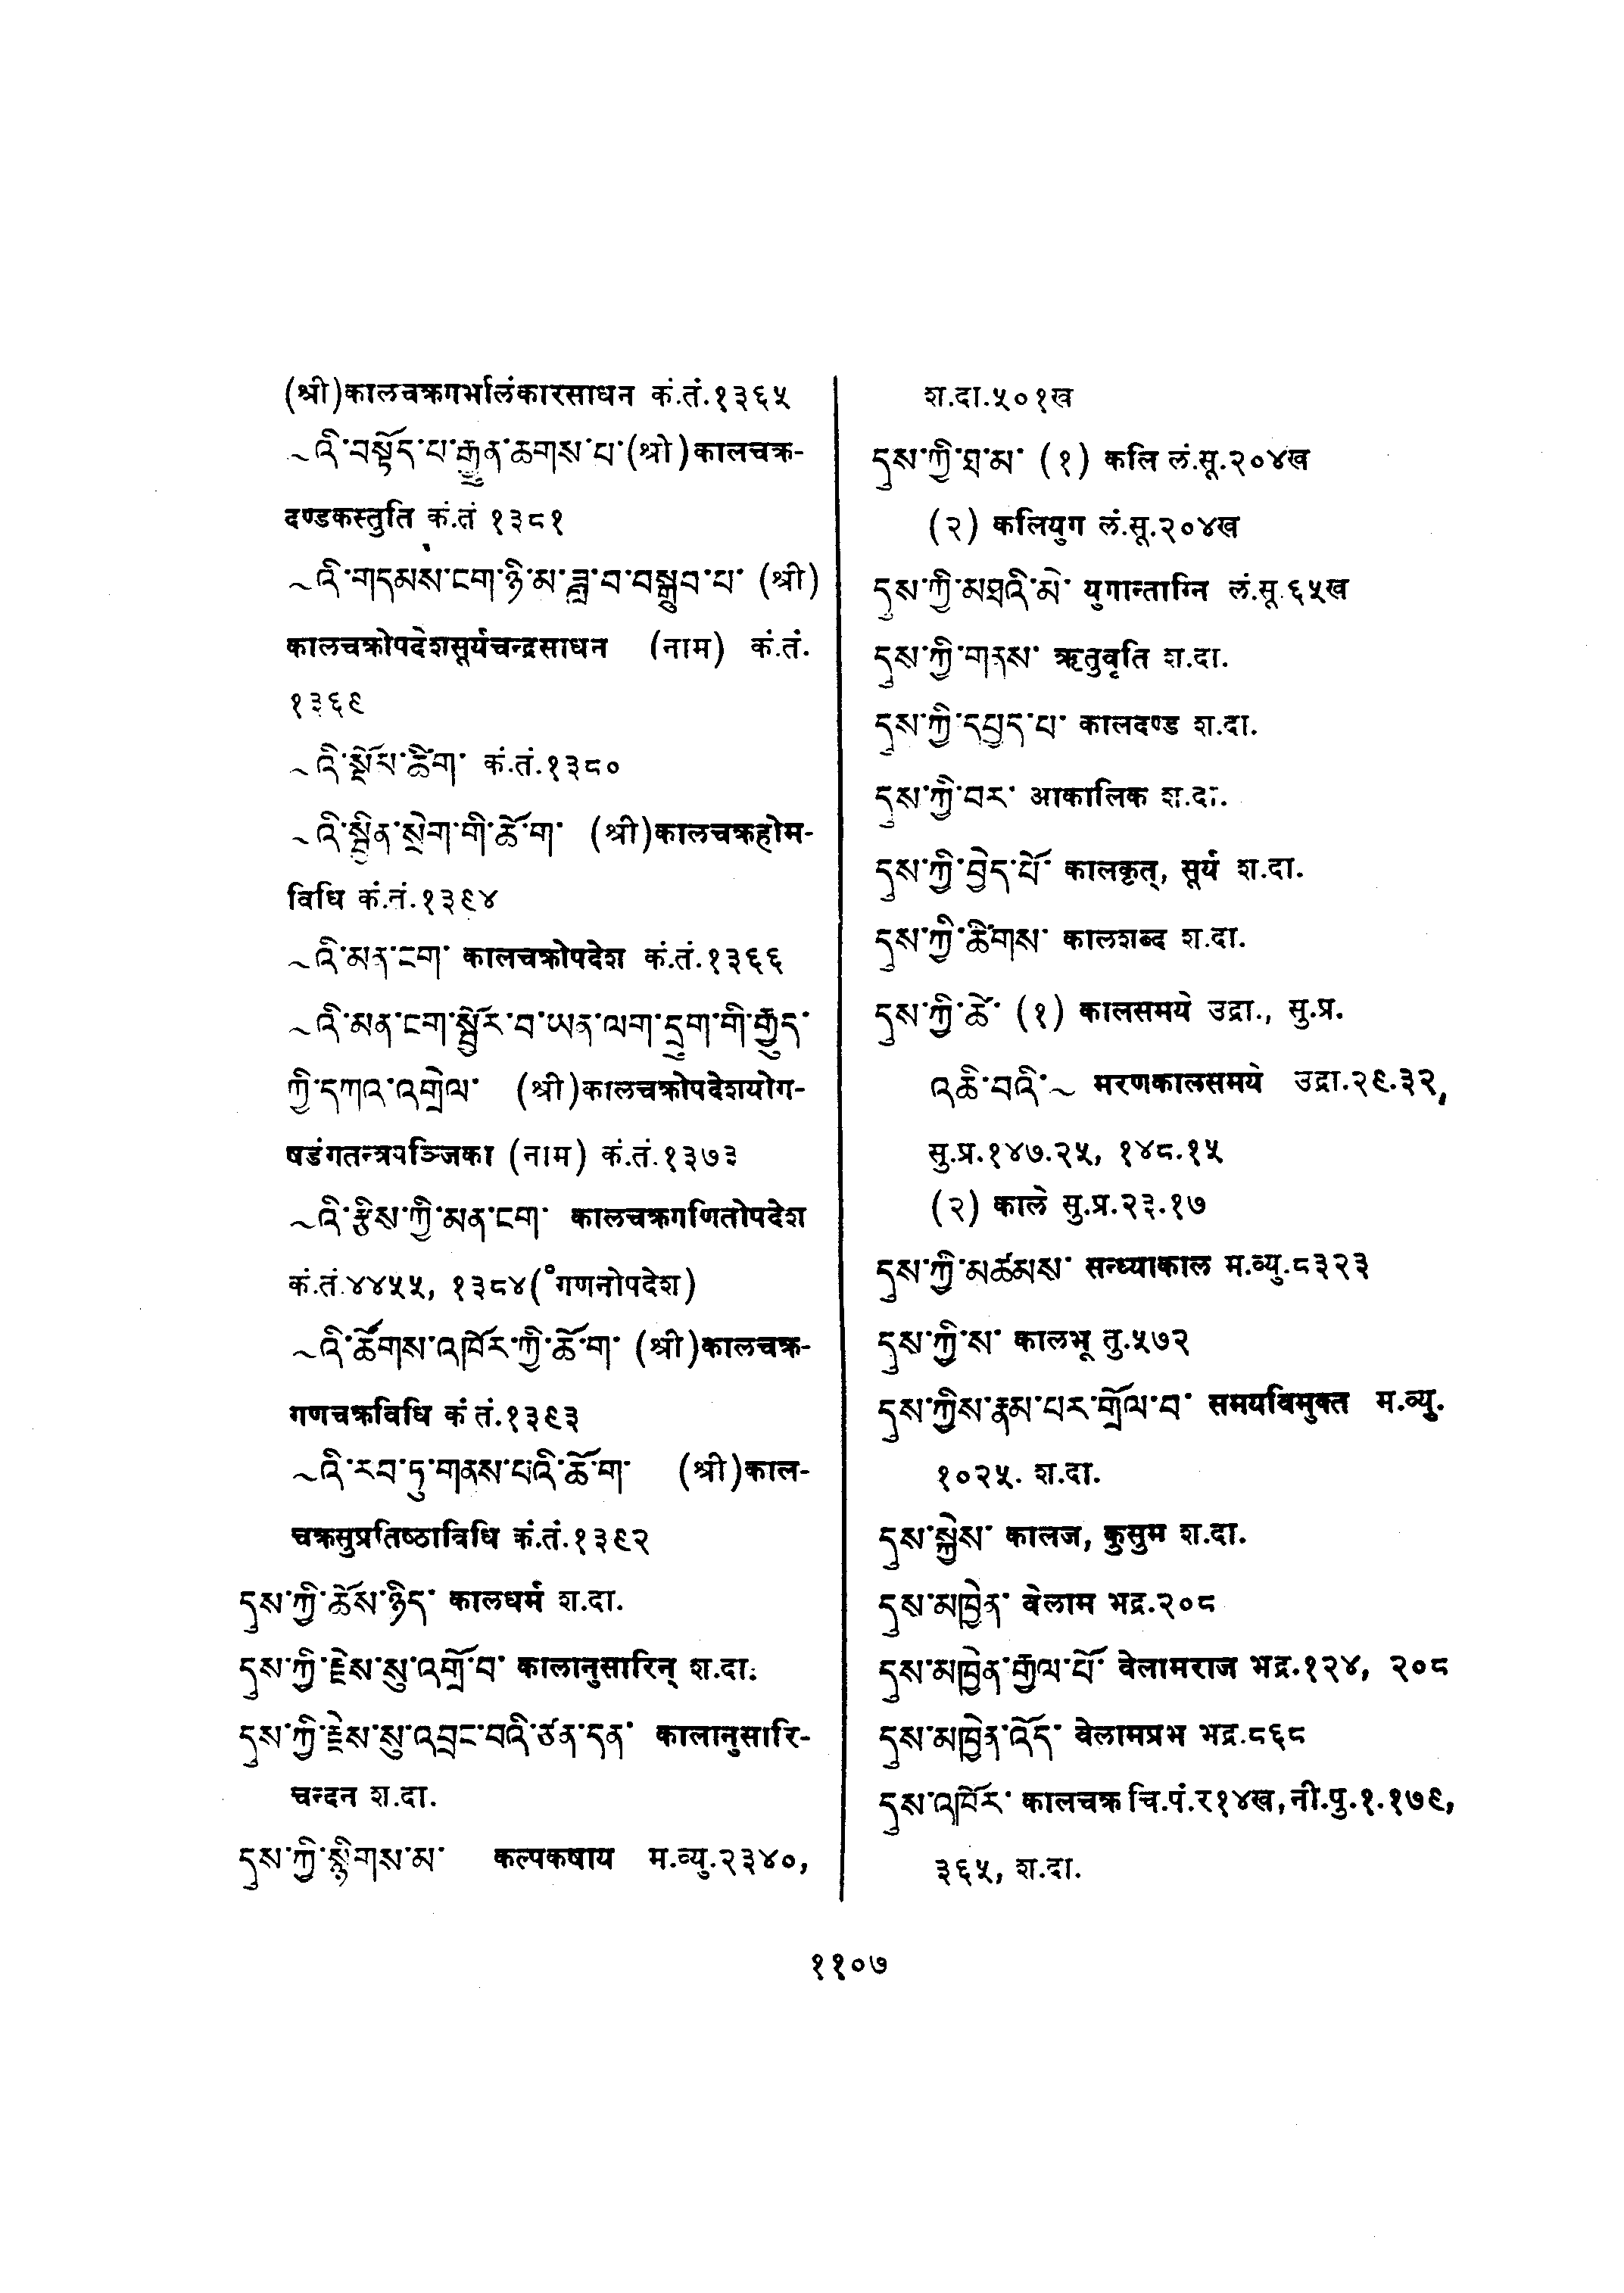 (श्री)कालचक्रगर्भालंकारसाधन कं.तं.१३६५
~འི་བསྟོད་པ་རྒྱུན་ཆགས་པ་(श्री)कालचक्र-
दण्डकस्तुति कं.तं १३८१
~འི་གདམས་ངག་ཉི་མ་ཟླ་བ་བསྒྲུབ་པ་ (श्री)
कालचक्रोपदेशसूर्यचन्द्रसाधन (नाम) कं.तं.
१३६९
~འི་སྡོམ་ཚིག་ कं.तं.१३८०
~འི་སྦྱིན་སྲེག་གི་ཆོ་ག་ (श्री)कालचक्रहोम-
विधि कं.तं.१३९४
~འི་མན་ངག་ कालचक्रोपदेश कं.तं.१३६६
~འི་མན་ངག་སྦྱོར་བ་ཡན་ལག་དྲུག་གི་རྒྱུད་
ཀྱི་དཀའ་འགྲེལ་ (श्री)कालचक्रोपदेशयोग-
षडंगतन्त्रपञ्जिका (नाम) कं.तं.१३७३
~འི་རྩིས་ཀྱི་མན་ངག་ कालचक्रगणितोपदेश
कं.तं.४४५५, १३८४(॰गणनोपदेश)
~འི་ཚོགས་འཁོར་ཀྱི་ཆོ་ག་ (श्री)कालचक्र-
गणचक्रविधि कं तं.१३९३
~འི་རབ་ཏུ་གནས་པའི་ཆོ་ག་ (श्री)काल-
चक्रसुप्रतिष्ठाविधि कं.तं.१३९२
དུས་ཀྱི་ཆོས་ཉིད་ कालधर्म श.दा.
དུས་ཀྱི་རྗེས་སུ་འགྲོ་བ་ कालानुसारिन् श.दा.
དུས་ཀྱི་རྗེས་སུ་འབྲང་བའི་ཙན་དན་ कालानुसारि-
चन्दन श.दा.
དུས་ཀྱི་སྙིགས་མ་ कल्पकषाय म.व्यु.२३४०,
श.दा.५०१ख
དུས་ཀྱི་ཐ་མ་ (१) कलि लं.सू.२०४ख
(२) कलियुग लं.सू.२०४ख
དུས་ཀྱི་མཐའི་མེ་ युगान्ताग्नि लं.सू.६५ख
དུས་ཀྱི་གནས་ ऋतुवृति श.दा.
དུས་ཀྱི་དཔྱད་པ་ कालदण्ड श.दा.
དུས་ཀྱི་བར་ आकालिक श.दा.
དུས་ཀྱི་བྱེད་པོ་ कालकृत्, सूर्य श.दा.
དུས་ཀྱི་ཚིགས་ कालशब्द श.दा.
དུས་ཀྱི་ཚེ་ (१) कालसमये उद्रा., सु.प्र.
འཆི་བའི་~ मरणकालसमये उद्रा.२९.३२,
सु.प्र.१४७.२५, १४८.१५
(२) काले सु.प्र.२३.१७
དུས་ཀྱི་མཚམས་ सन्ध्याकाल म.व्यु.८३२३
དུས་ཀྱི་ས་ कालभू तु.५७२
དུས་ཀྱིས་རྣམ་པར་གྲོལ་བ་ समयविमुक्त म.व्यु.
१०२५. श.दा.
དུས་སྐྱེས་ कालज, कुसुम श.दा.
དུས་མཁྱེན་ वेलाम भद्र.२०८
དུས་མཁྱེན་རྒྱལ་པོ་ वेलामराज भद्र.१२४, २०८
དུས་མཁྱེན་འོད་ वेलामप्रभ भद्र.८६८
དུས་འཁོར་ कालचक्र चि.पं.र१४ख,नी.पु.१.१७९,
३६५, श.दा.
११०७